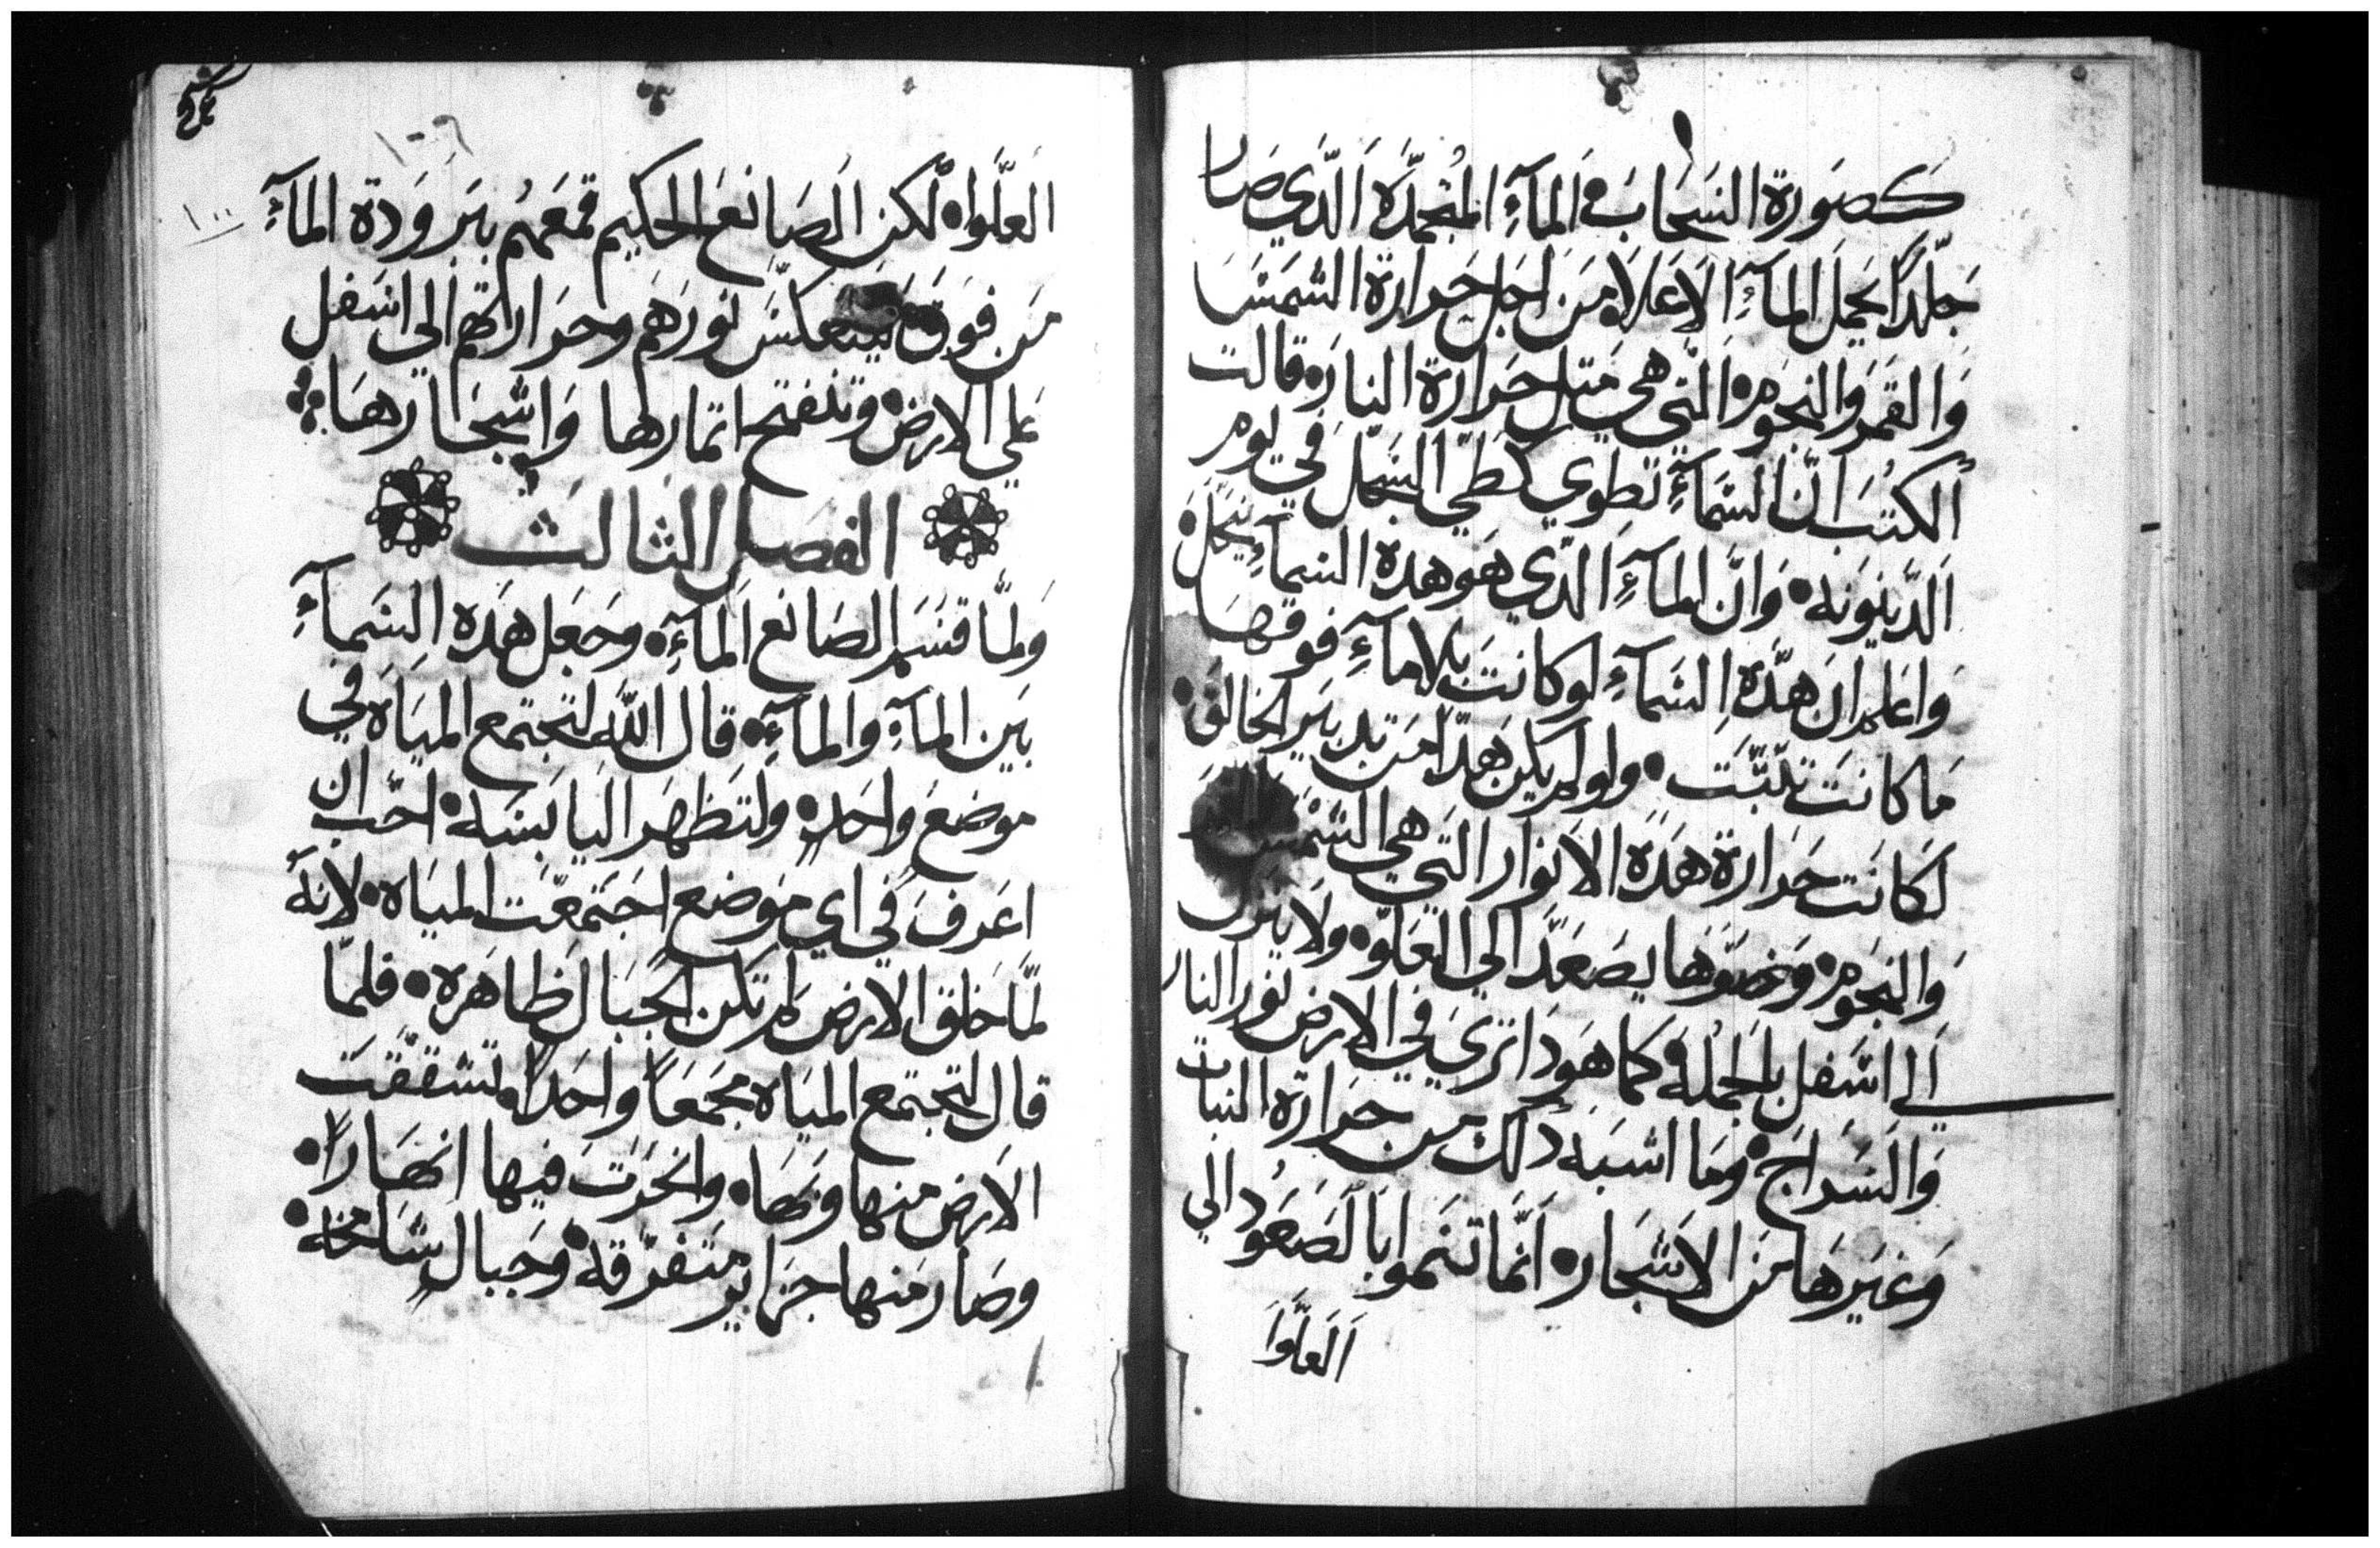 كصورة السحاب في المآء المنجمده الذي صار
جلدًا يحمل المآء الاعلا من اجل حرارة الشمس
والقمر والنجوم التي هي مثل حرارة النار قالت
الكتب ان السمآء تطوي كطي السجل في يوم
الدينونه وان المآء الدي هو هده السمآء ينحل
واعلم ان هده السمآء لو كانت بلا مآء فوقها
ما كانت تلبتت ولو لم يكن هدا من تدبير الخالق
لكانت حرارة هده الانوار التي هي الشمس
والنجوم وضوها يصعد الي العلو ولا ينزل
الي اسفل بالجمله كما هودا تري في الارض نور النار
والسراج وما اشبه دلك من حرارة النبات
وغيرها من الاشجار انما تنموا بالصعود الي
العلوا
١٠٦
١٠٠
العلوا لكن الصانع الحكيم قمعهم ببرودة المآء
من فوق لينعكس نورهم وحرارتهم الي اسفل
علي الارض وتنفتح اتمارها واشجارها
الفصل الثالث
ولما قسم الصانع المآء وجعل هده السمآء
بين المآء والمآء قال الله لتجتمع المياه في
موضع واحد ولتظهر اليابسه احب ان
اعرف في اي موضع اجتمعت المياه لانه
لما خلق الارض لم تكن الجبال ظاهره فلما
قال لتجتمع المياه مجمعًا واحدًا وتشققت
الارض منها وبها وانحرت فيها انهارًا
وصار منها جزاير متفرقه وجبال شامخه